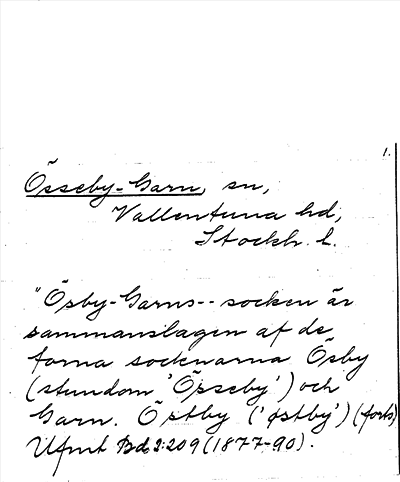 1.
Össeby-Garn, sn,
Vallentuna hd,
Stockh. l.
"Ösby-Garns-- socken är
sammanslagen af de
forna socknarna Ösby
(stundom 'Öpseby') och
Garn. Östby ('østby') (forts)
Ufmt Bd 2:209 (1877-90).